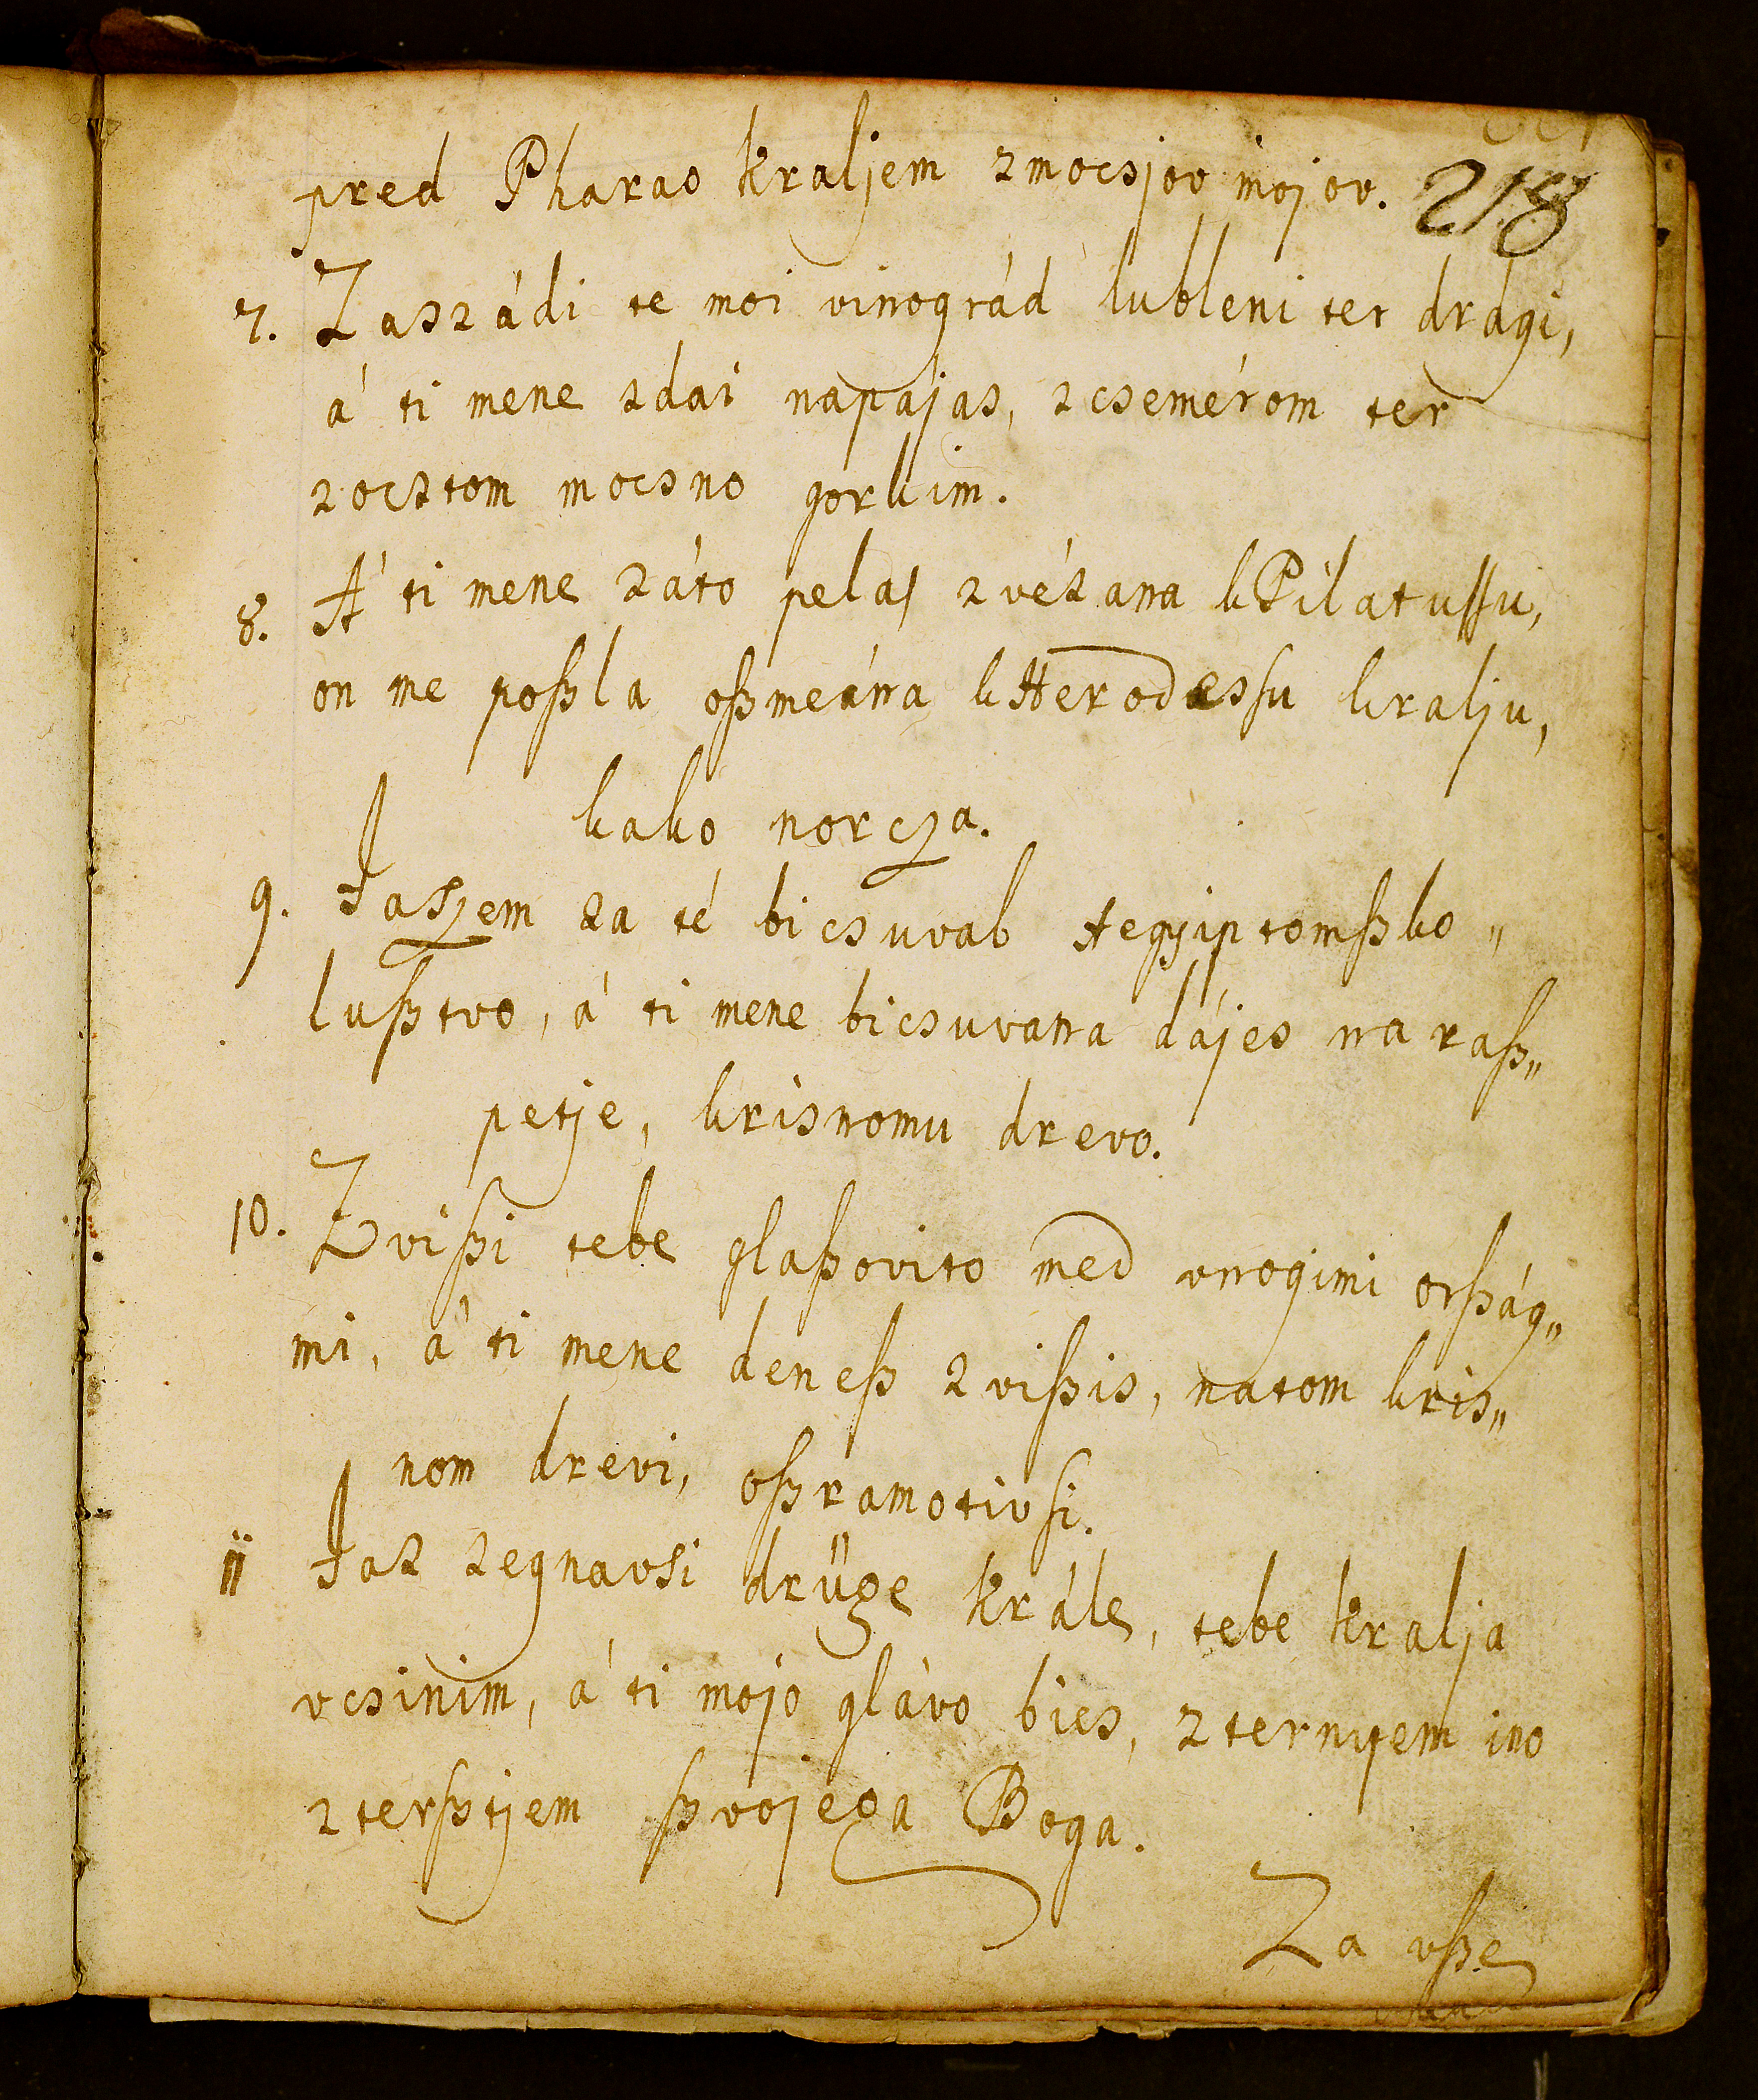 pred Pharao kraljem zmocsjov mojov. 218
7. Zaszádi te moi vinográd lubleni ter dragi,
á ti mene zdai napájas, zcsemérom ter
zocztom mocsno gorkim.
8. A ti mene záto pelas zvézana kPilatussu,
on me poßla oßmeána kHerodessu kralju,
kako norcza.
9. Jaszem za té bicsuval Aegyiptomßko„
lußtvo, á ti mene bicsuvana dájes na raß„
petje, krisnomu drevo.
10. Zvißi tebe glaßovito med vnogimi orßág„
mi, á ti mene deneß zvißis, natom kris„
nom drevi, oßramotivsi.
ii Jaz zegnavsi drüge krále, tebe kralja
vcsinim, á ti mojo glávo bies, zternyem ino
zterßtjem ßvojega Boga.
Za vße